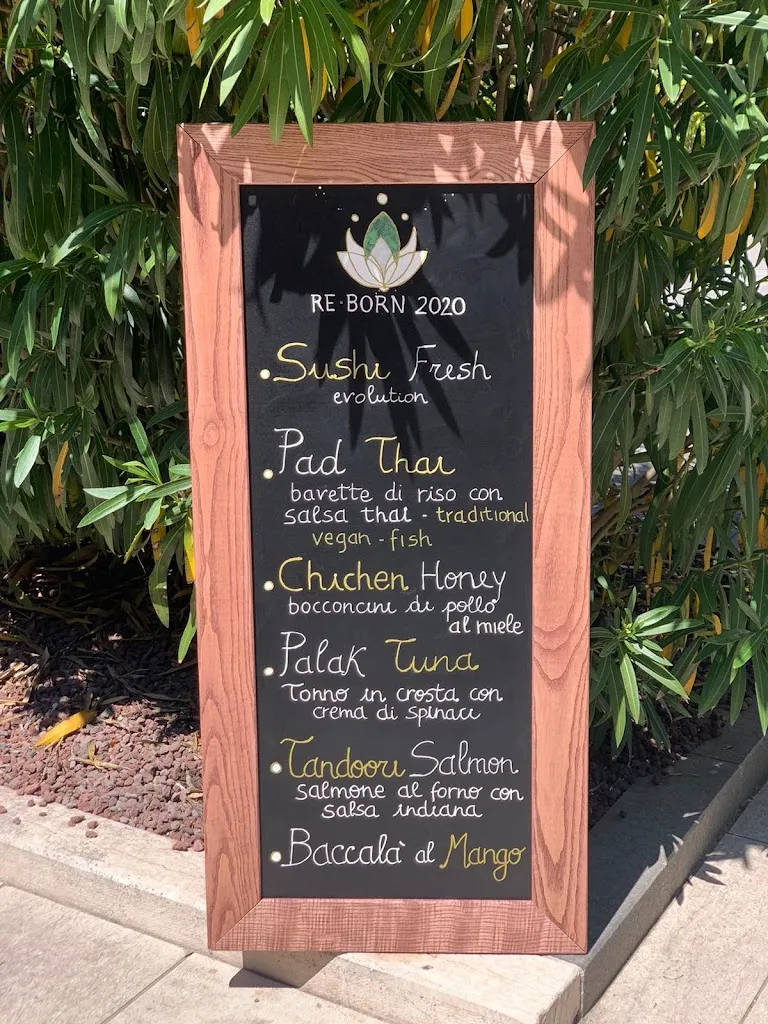 RE·BORN 2020
Sushi Fresh
evolution
Pad Thai
bavette di riso con
salsa thai - traditional
vegan - fish
Chichen Honey
bocconcini di pollo
al miele
Palak Tuna
Tonno in crosta con
crema di spinaci
Tandoori Salmon
salmone al forno con
salsa indiana
Baccalà al Mango